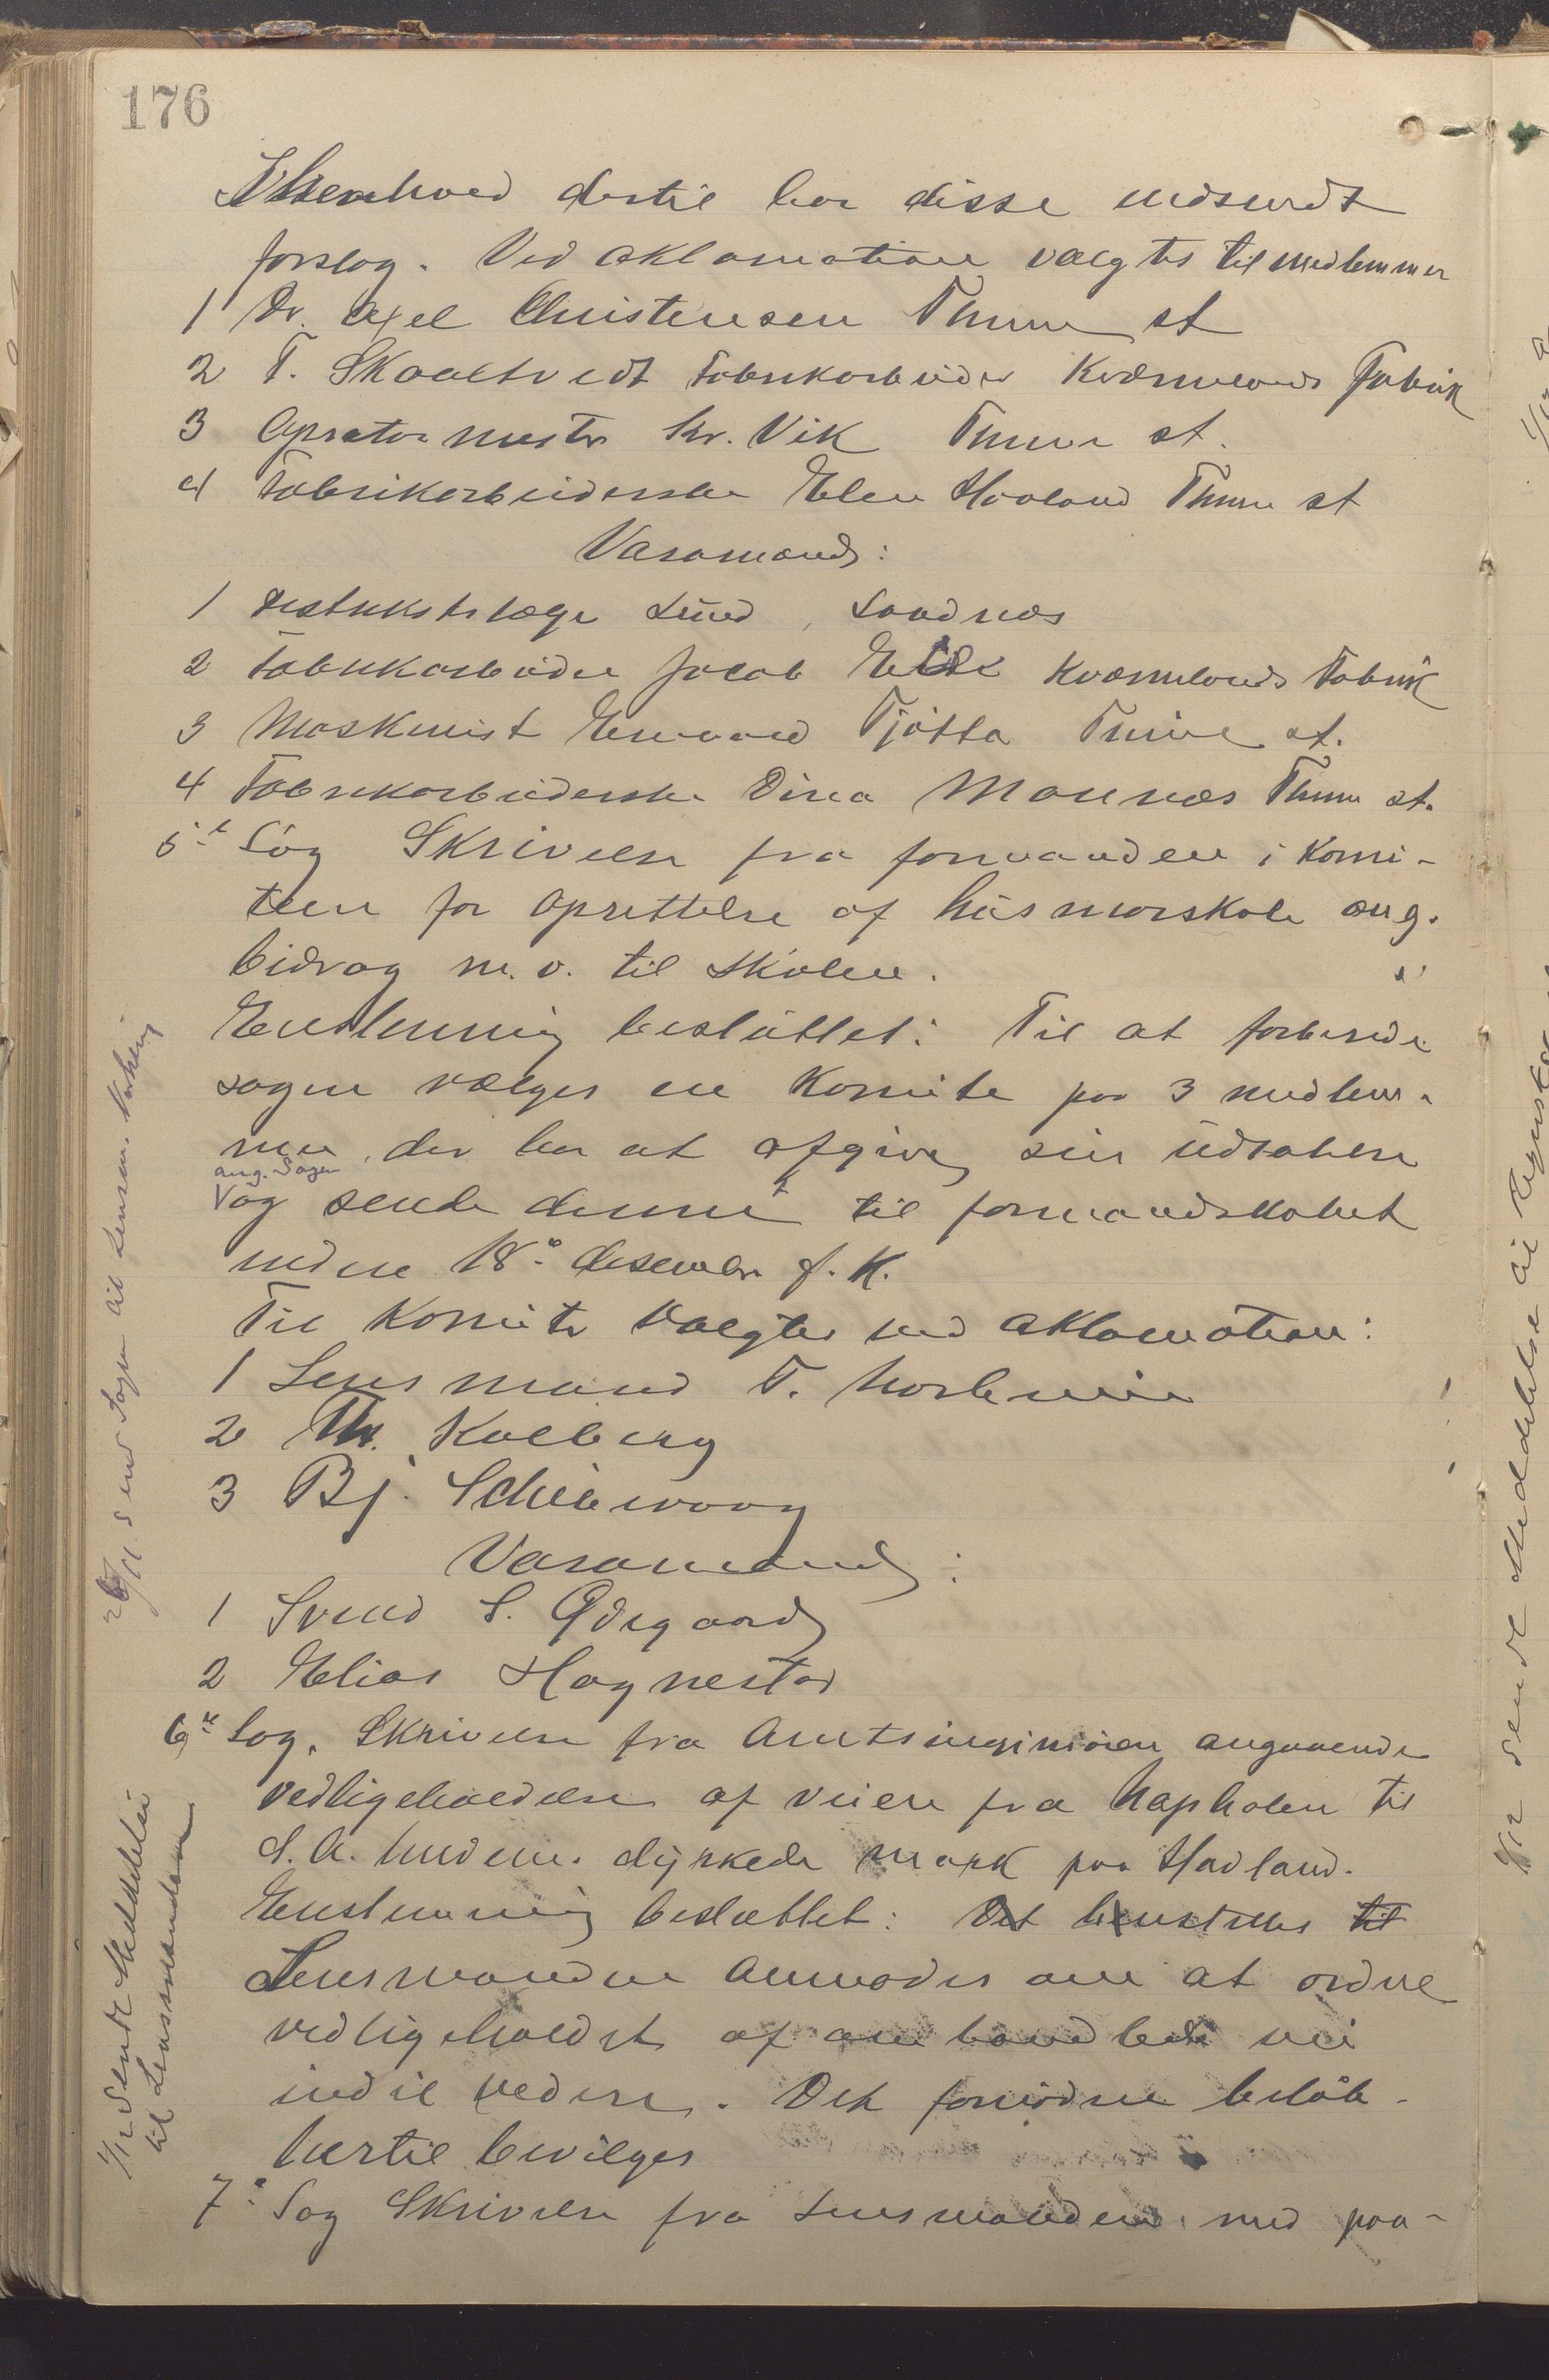 176
I henhold dertil har disse indsendt
forslag. Ved aklamation valgtes til medlemmer
1 Dr. Axel Christensen Thime st
2 T. Skaaltvedt Fabrikarbeider Kværnelands Fabrik
3 Opratør mester Kr. Vik Thime st.
4 Fabrikarbeiderske Elen Haaland Thime st
Varamænd:
1 Destriktslæge Lund, Sandnæs
2 Fabrikarbeider Jacob Eide Kværnelands Fabrik
3 Maskinist Enevald Tjøtta Thime st.
4 Fabrikarbeiderske Dina Maunæs Thime st.
5te Sag Skrivelse fra formanden i Komi-
teen for oprettelse af husmorskole ang.
bidrag m.v. til skolen.
Enstemmig besluttet: Til at forberede
sagen vælges en Komite paa 3 medlem-
mer, der har at afgive sin udtalelse
ang. Sagen
og sende denne til formandskabet
inden 18de desember f. k.
Til Komite valgtes ved aklamation:
1 Lensmand T. Norheim
2 Th. Kolberg
3 Bj. Schiewaag
Varamænd:
1 Svend S. Ødegaard
2 Elias Hognestad
6te Sag. Skrivelse fra Amtsingeniøren angaaende
vedligeholdelse af veien fra Napholen til
S. A. Undem. dyrkede mark paa Hadland.
Enstemmig besluttet: Det henstilles til
Lensmanden anmodes om at ordne
vedligeholdet af omhandlede vei
indtil videre. Det fornødne beløb
hertil bevilges
7de Sag Skrivelse fra Lensmanden med paa-
26/11 Send Sagen til Lensm. Norheim
1/12 Sendt Meddelelse
til Lensmanden
1/12 Sendt Meddelelse til